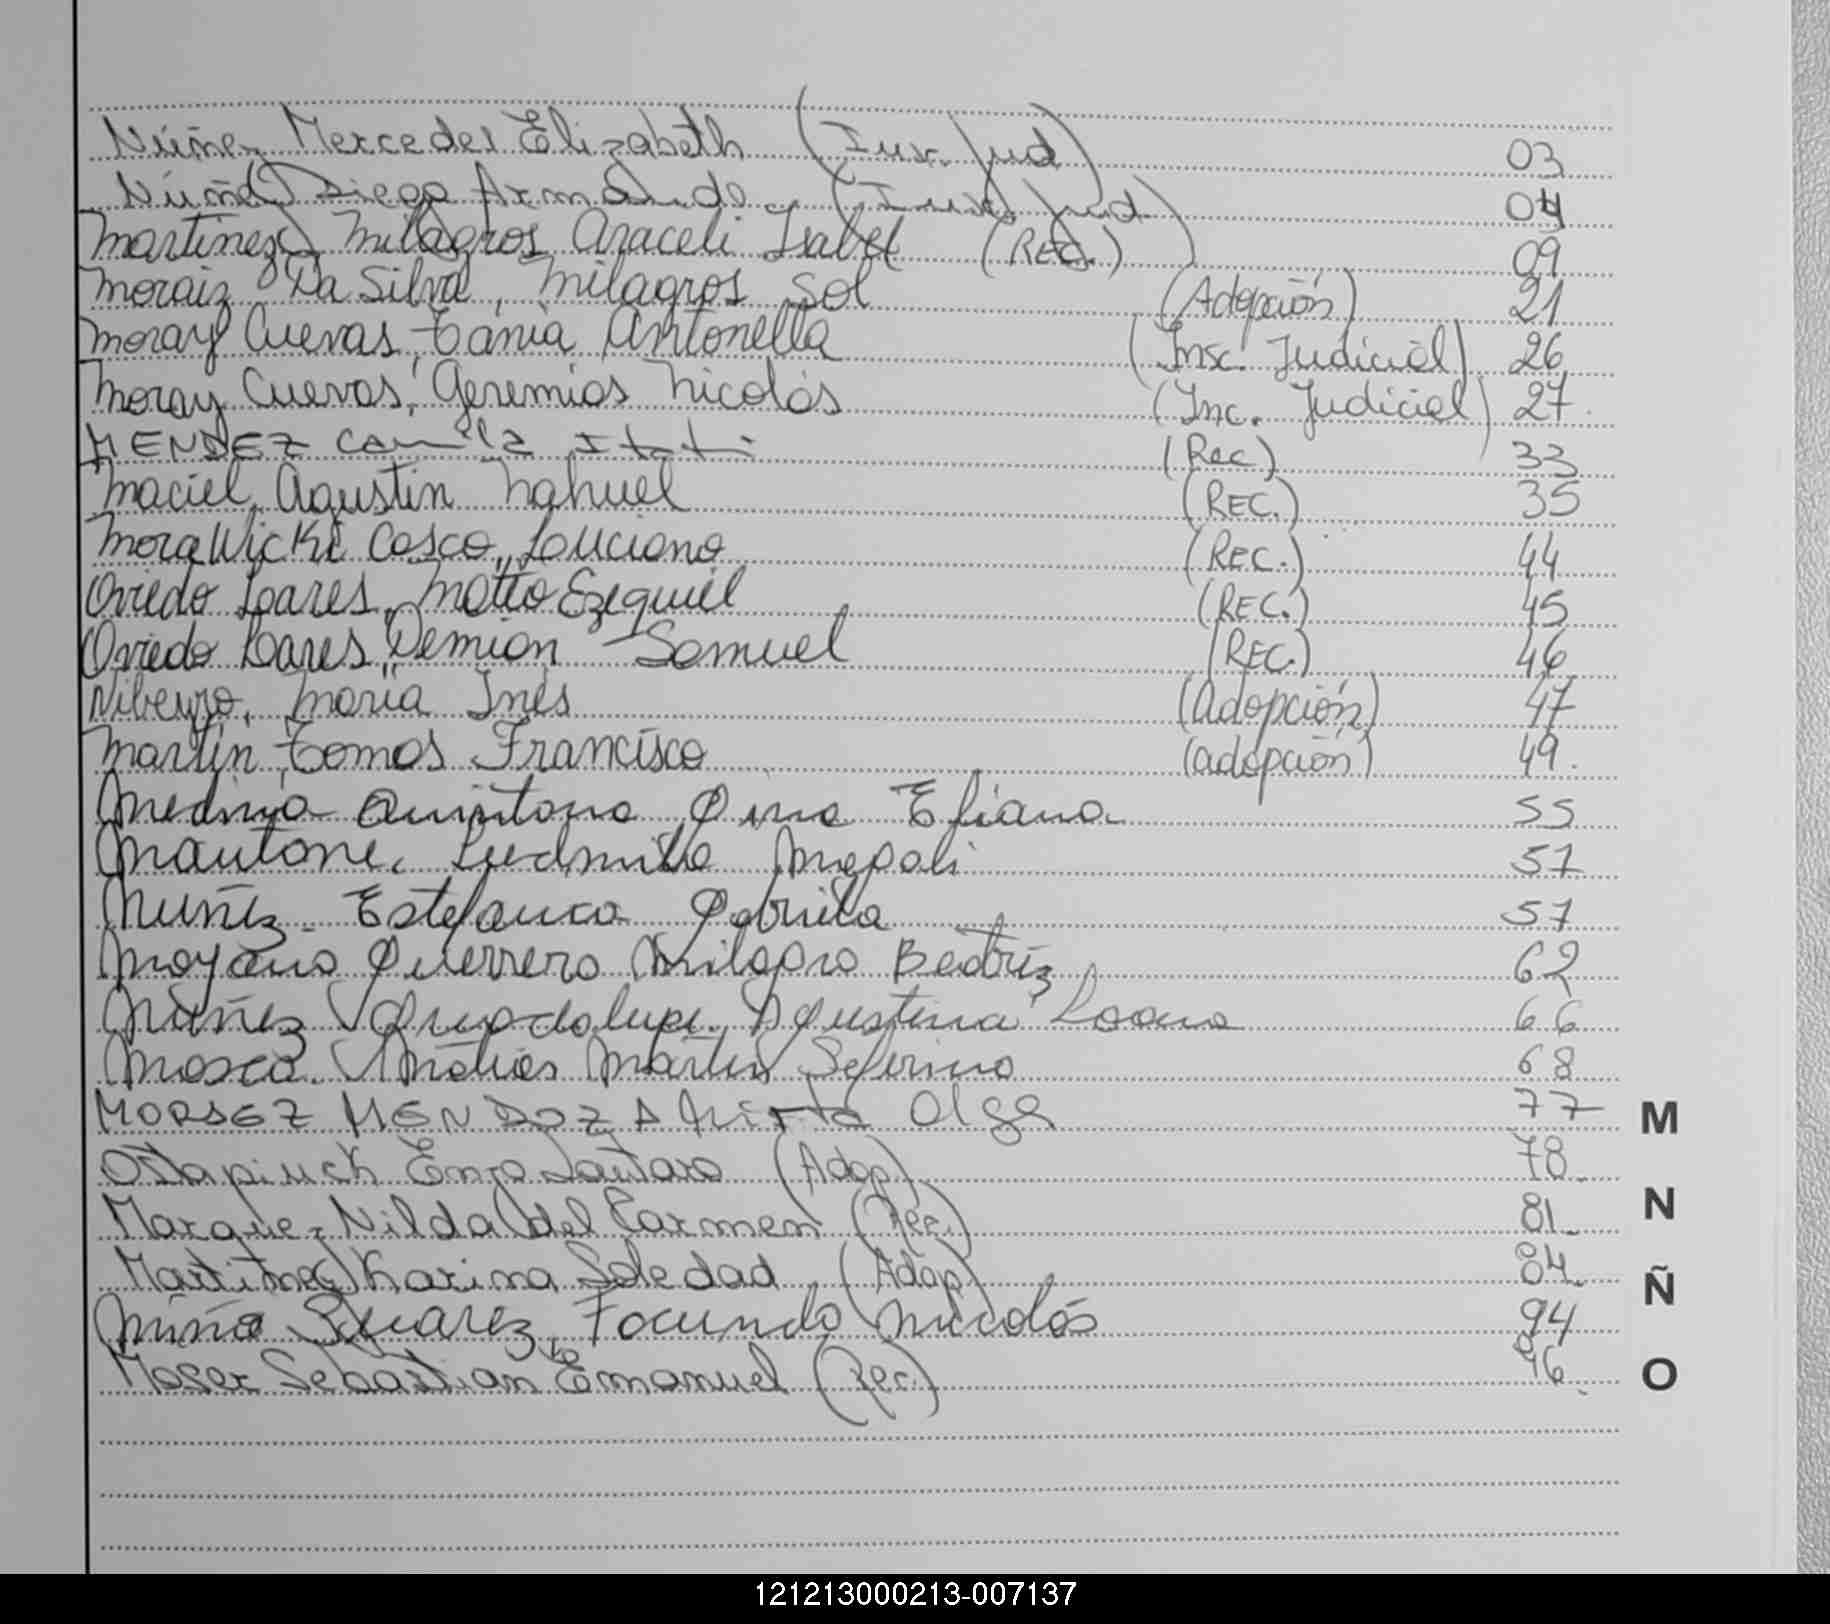 Núñez Mercedes Elizabeth (Insc. Jud) 03
Núñez Diego Armando (Insc. Jud.) 04
Martinez, Milagros Araceli Isabel (REC.) 09
Moraiz Da Silva, Milagros Sol (Adopción) 21
Moray Cuevas, Tánia Antonella (Insc. Judicial) 26
Moray Cuevas, Geremias Nicolás (Inc. Judicial) 27
MENDEZ Camila Itati (Rec) 33
Maciel, Agustin Nahuel (REC.) 35
Morawicki Casco, Luciano (REC.) 44
Oviedo Loares, Matto Ezequiel (REC.) 45
Oviedo Loares, Demian Samuel (REC.) 46
Nibeyro, Maria Inés (Adopción) 47
Martin, Tomas Francisco (adopción) 49
Medina Quintana Eliana 55
Mautone, Ludmila Magali 57
Nuñez Estefania Gabriela 57
Moyano Guerrero Milagro Beatriz 62
Núñez Guadalupe Agustina 66
Mosca. Matias Martin Seferino 68
MORSEZ MENDOZA Mirta Olga 77
Ostapiuck Enzo Lautaro (Adop) 78
Marquez Nilda del Carmen (Rec.) 81
Martinez Karina Soledad (Adop) 84
Miño Suarez, Facundo Nicolás 94
Moser Sebastian Emanuel (Rec.) 96
M
N
Ñ
O
121213000213-007137